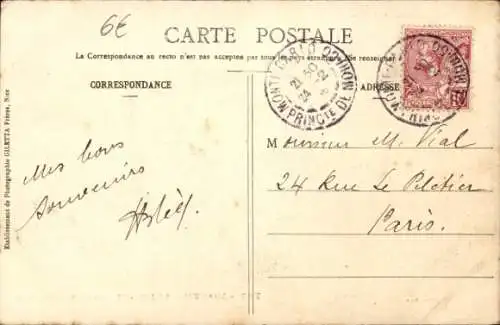 6€
CARTE POSTALE
La Correspondance au recto n'est pas acceptée par tous pays étrangers. (Se renseigner
CORRESPONDANCE
ADRESSE
MONTE-CARLO
21 50
24 - 2
PRINCTE DE MONACO
Mes bons
souvenirs
Monsieur M. Vial
24 Rue Le Peletier
Paris.
Etablissement de Photographie GILETTA Frères, Nice